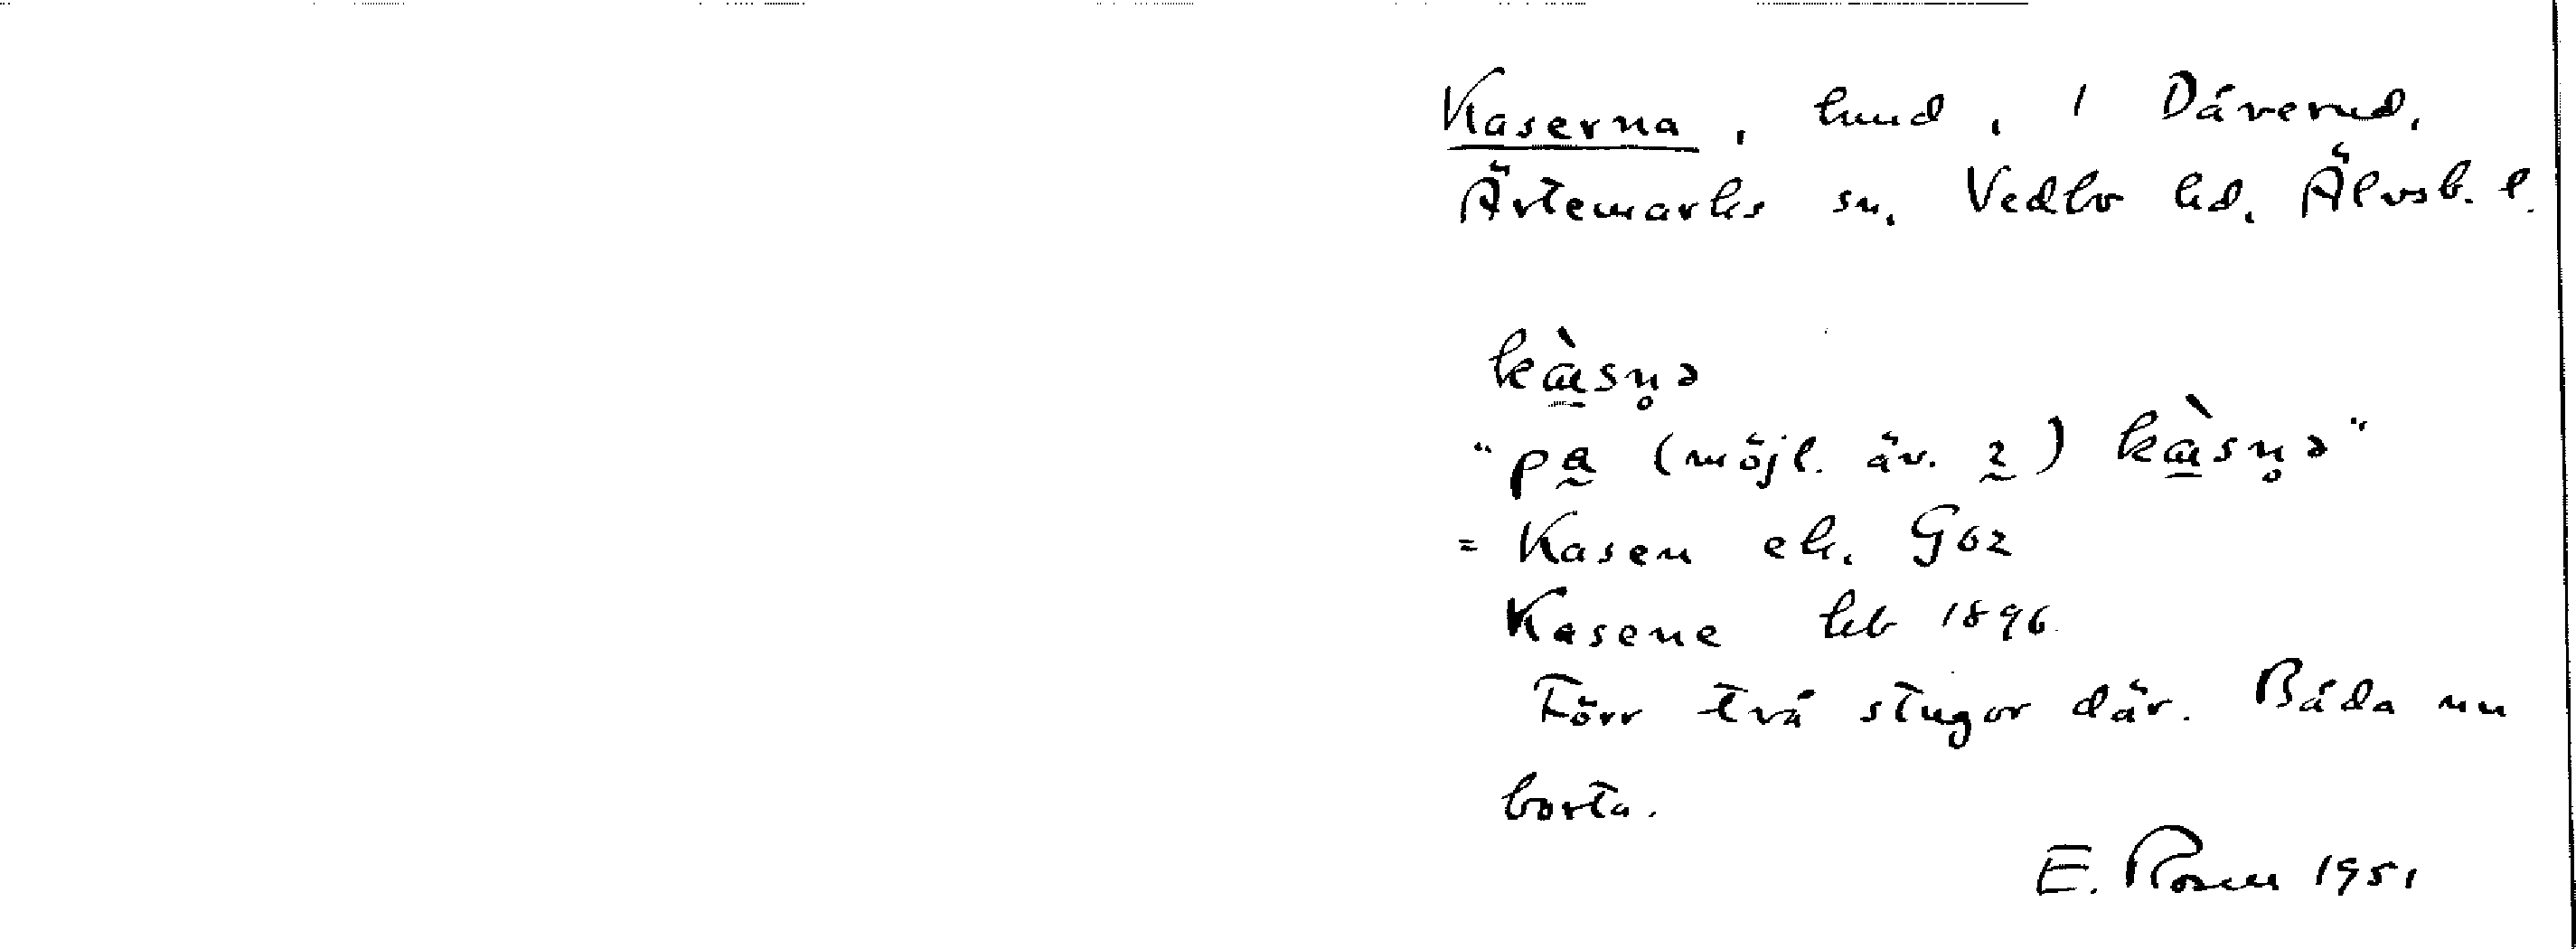 Kaserna, hmd, i Dåverud,
Ärtemarks sn, Vedbo hd. Älvsb. l.
kàsn̥ə
"pa (möjl. äv. ) kàsn̥ə"
= Kasen ek. G62
Kasene hb 1896.
Förr två stugor där. Båda nu
borta.
E. Rosen 1951